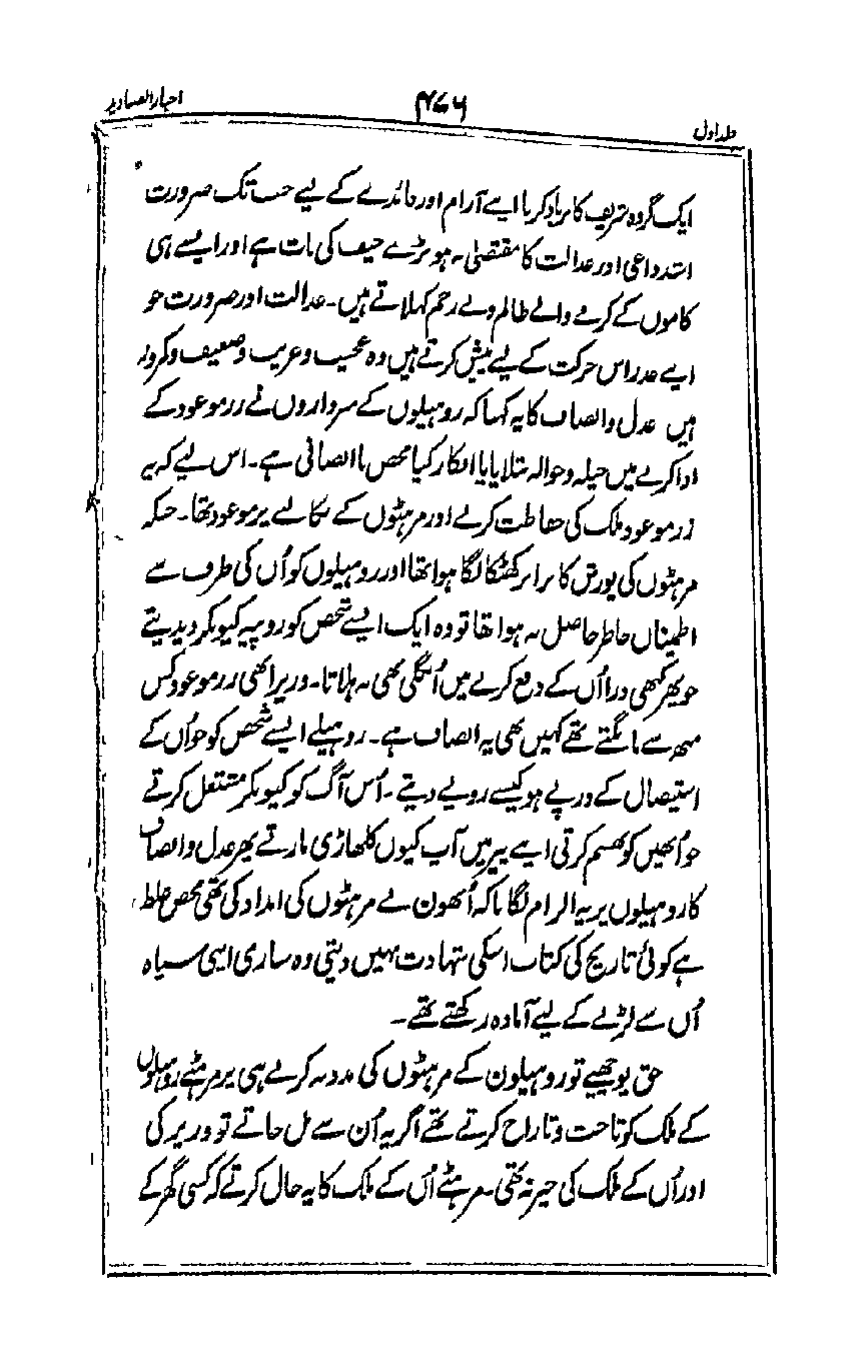 اخبار الصنادید
۴۷۶
جلد اول
ایک گروہ شریف کا برباد کرنا اپنے آرام اور فائدے کے لیے جب تک ضرورت
استدداعی اور عدالت کا مقتضیٰ نہ ہو بڑے حیف کی بات ہے اور ایسے ہی
کاموں کے کرنے والے ظالم و بے رحم کہلاتے ہیں۔ عدالت اور ضرورت جو
اپنے عذر اس حرکت کے لیے پیش کرتے ہیں وہ عجیب و غریب و ضعیف و کمزور
ہیں عدل و انصاف کا یہ کہنا کہ روہیلوں کے سرداروں نے زر موعود کے
ادا کرنے میں حیلہ و حوالہ بتلایا یا انکار کیا محض ناانصافی ہے۔ اس لیے کہ یہ
زر موعود ملک کی حفاظت کرنے اور مرہٹوں کے نکالنے پر موعود تھا۔ جبکہ
مرہٹوں کی یورش کا برابر کھٹکا لگا ہوا تھا اور روہیلوں کو اُن کی طرف سے
اطمینان خاطر حاصل نہ ہوا تھا تو وہ ایک ایسے شخص کو روپیہ کیونکر دیدیتے
جو پھر کبھی ذرا اُن کے دفع کرنے میں اُنگلی بھی نہ ہلاتا۔ وزیر ابھی زر موعود کس
منھ سے مانگتے تھے کہیں بھی یہ انصاف ہے۔ روہیلے ایسے شخص کو جو اُن کے
استیصال کے درپے ہو کیسے روپے دیتے۔ اُس آگ کو کیونکر مشتعل کرتے
جو اُنھیں کو بھسم کرتی اپنے پیر میں آپ کیوں کلھاڑی مارتے پھر عدل و انصاف
کا روہیلوں پر یہ الزام لگانا کہ اُنھون نے مرہٹوں کی امداد کی تھی محض غلط
ہے کوئی تاریخ کی کتاب اسکی شہادت نہیں دیتی وہ ساری اپنی سپاہ
اُن سے لڑنے کے لیے آمادہ رکھتے تھے۔
حق پوچھیے تو روہیلون کے مرہٹوں کی مدد نہ کرنے ہی پر مرہٹے روہیلوں
کے ملک کو تاخت و تاراج کرتے تھے اگر یہ اُن سے مل جاتے تو وزیر کی
اور اُن کے ملک کی خیر نہ تھی۔ مرہٹے اُن کے ملک کا یہ حال کرتے کہ کسی گھر کے